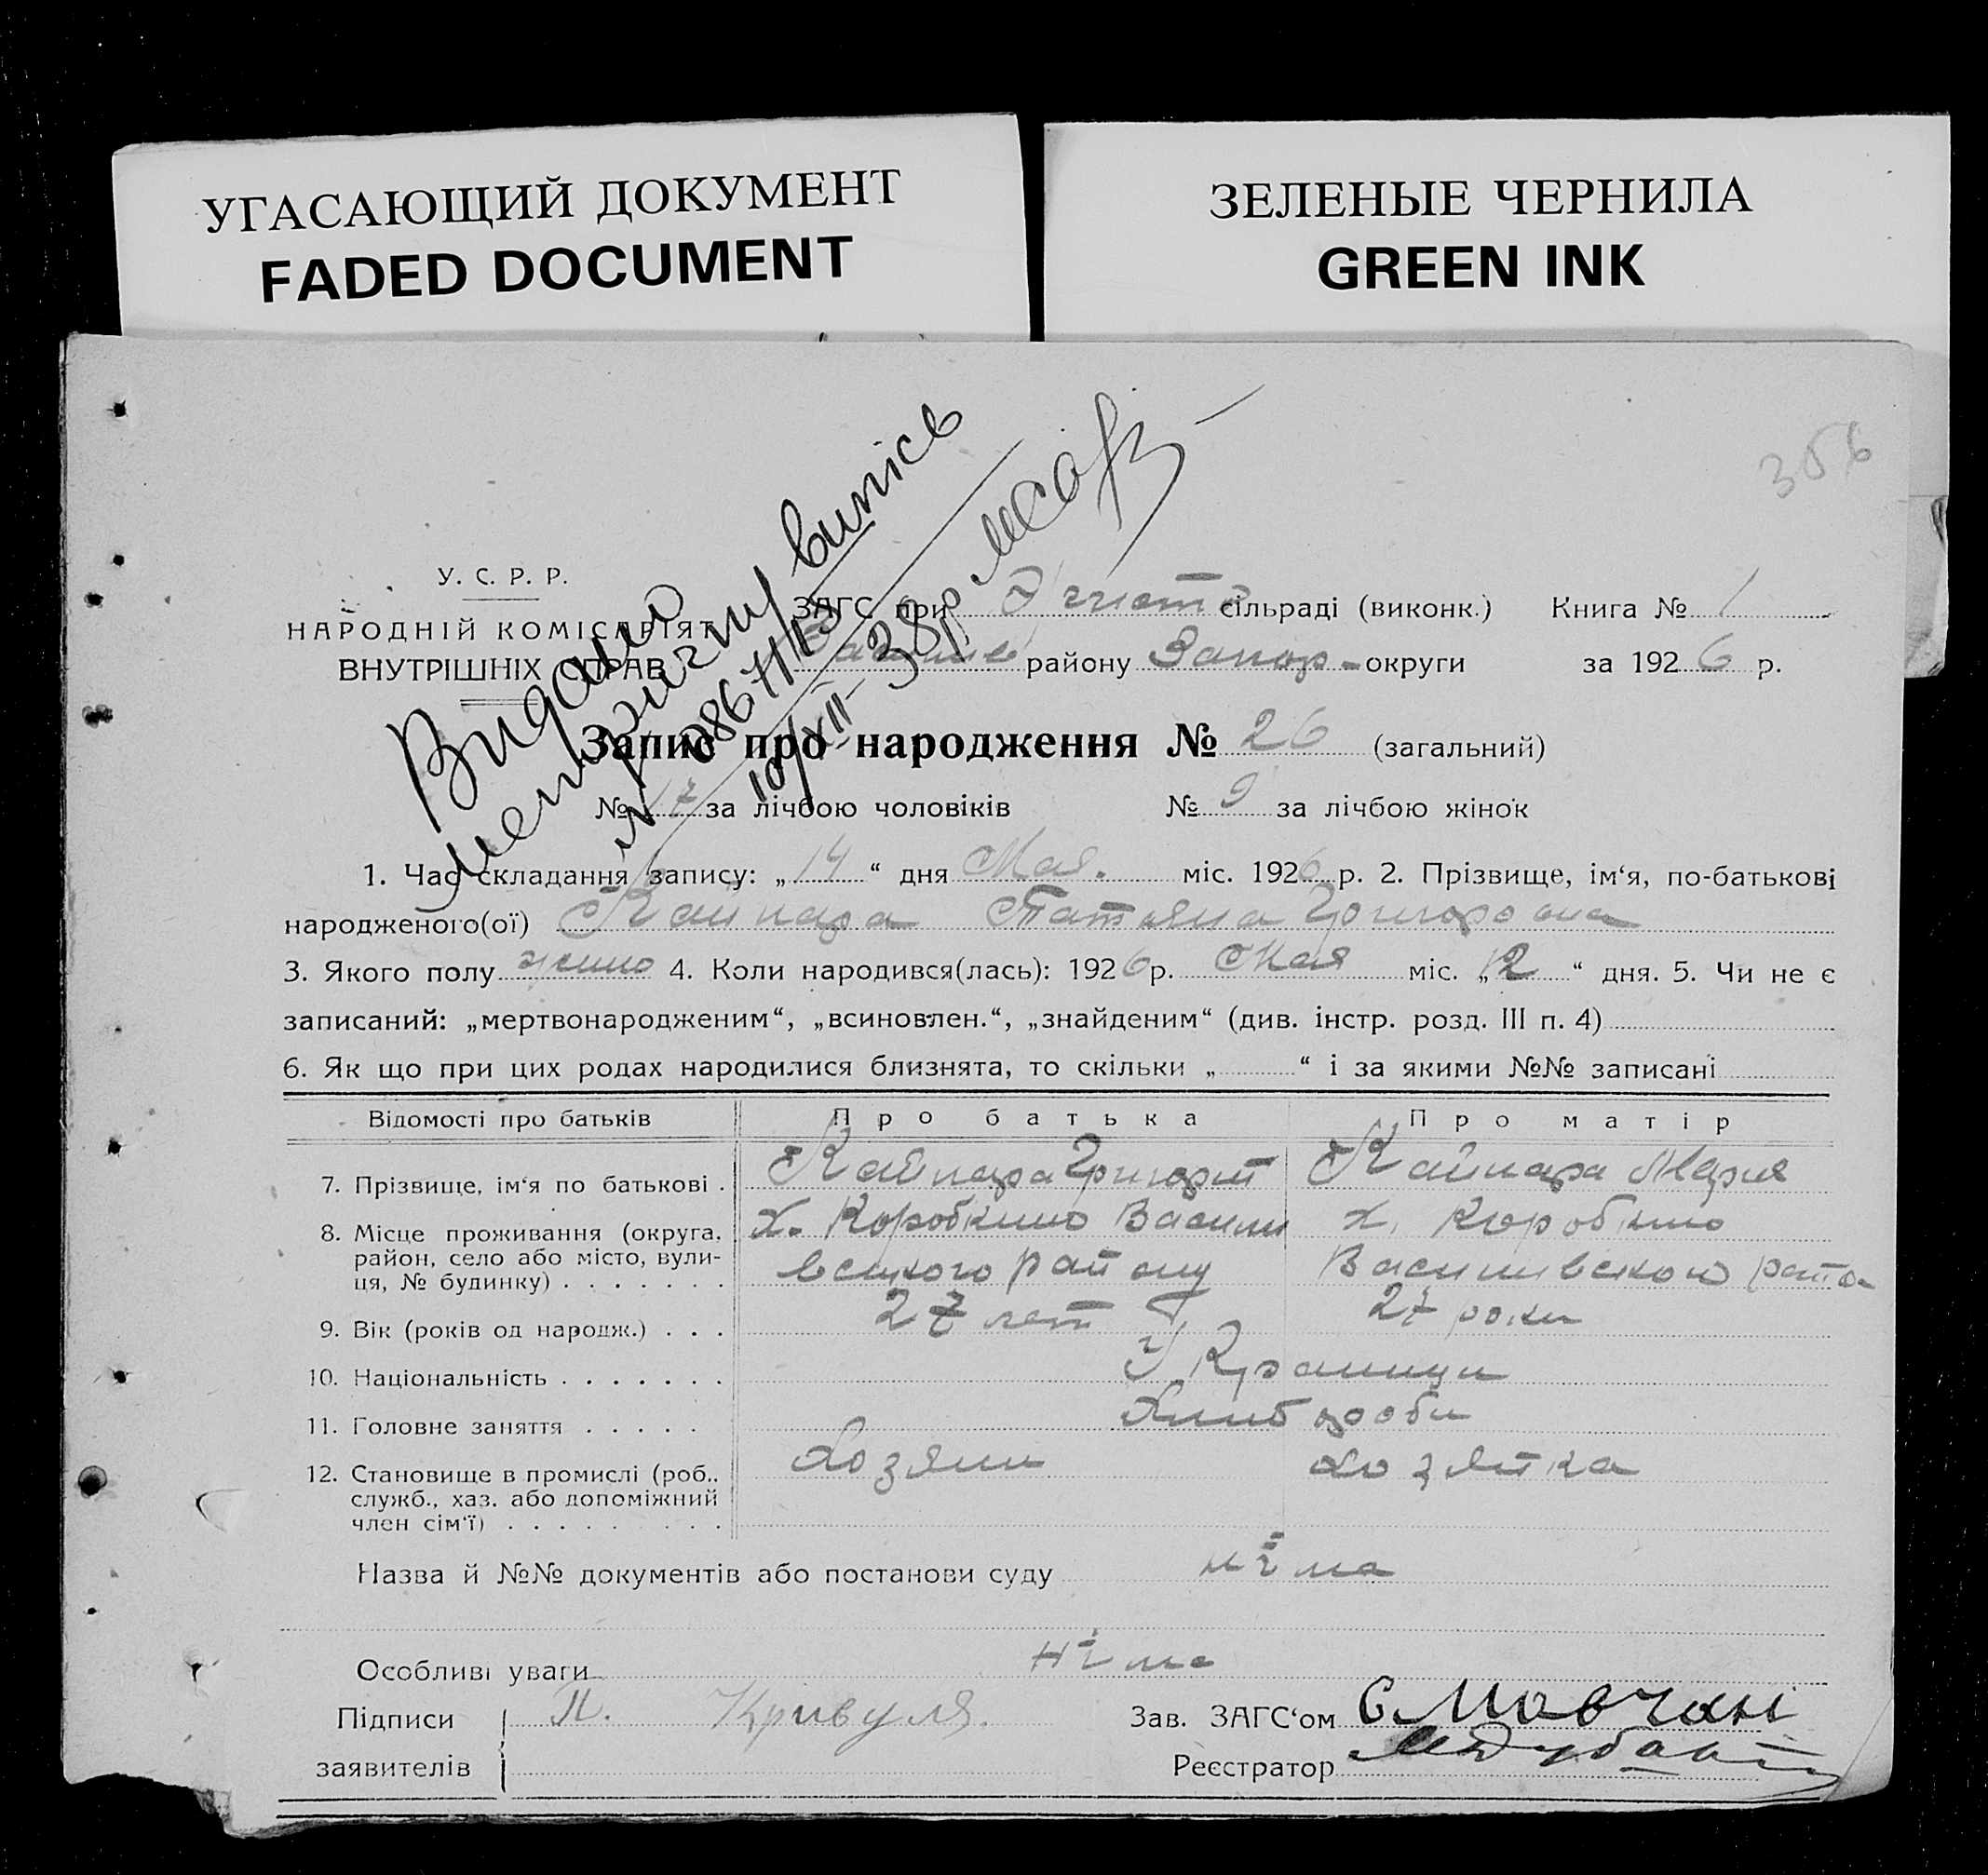 УГАСАЮЩИЙ ДОКУМЕНТ
FADED DOCUMENT
ЗЕЛЕНЫЕ ЧЕРНИЛА
GREEN INK
356
Видано
метричну випісь
10/XII-38р
У. С. Р. Р.
НАРОДНІЙ КОМІСАРІЯТ
ВНУТРІШНІХ СПРАВ
ЗАГС при сільраді (виконк.) Книга № 1
району Запор- округи за 1926 р.
Запис про народження № 26 (загальний)
№ 17 за лічбою чоловіків № 9 за лічбою жінок
1. Час складання запису: „14“ дня Мая. міс. 1926 р. 2. Прізвище, ім‘я, по-батькові
народженого(ої) Кайпара Татьяна Григоровна
3. Якого полу жино 4. Коли народився(лась): 1926 р. Мая міс. „12“ дня. 5. Чи не є
записаний: „мертвонародженим“, „всиновлен.“, „знайденим“ (див. інстр. розд. III п. 4)
6. Як що при цих родах народилися близнята, то скільки „ “ і за якими №№ записані
Відомості про батьків Про батька Про матір
7. Прізвище, ім‘я по батькові . Кайпара Григорій Кайпара Мария
8. Місце проживання (округа, район, село або місто, вулиця, № будинку) . . . . . . . х. Коробкино Василивського району х. Коробкино Василивского
9. Вік (років од народж.) . . . 27 лет 27 роки
10. Національність . . . . . . . Украинци
11. Головне заняття . . . . . Хлибороби
12. Становище в промислі (роб., служб., хаз. або допоміжний член сім‘ї) . . . . . . . . Хозяин хозяйка
Назва й №№ документів або постанови судуніма
Особливі уваги німа
Підписи П. Кривуля. Зав. ЗАГС‘ом С Мовчан
заявителів Реєстратор